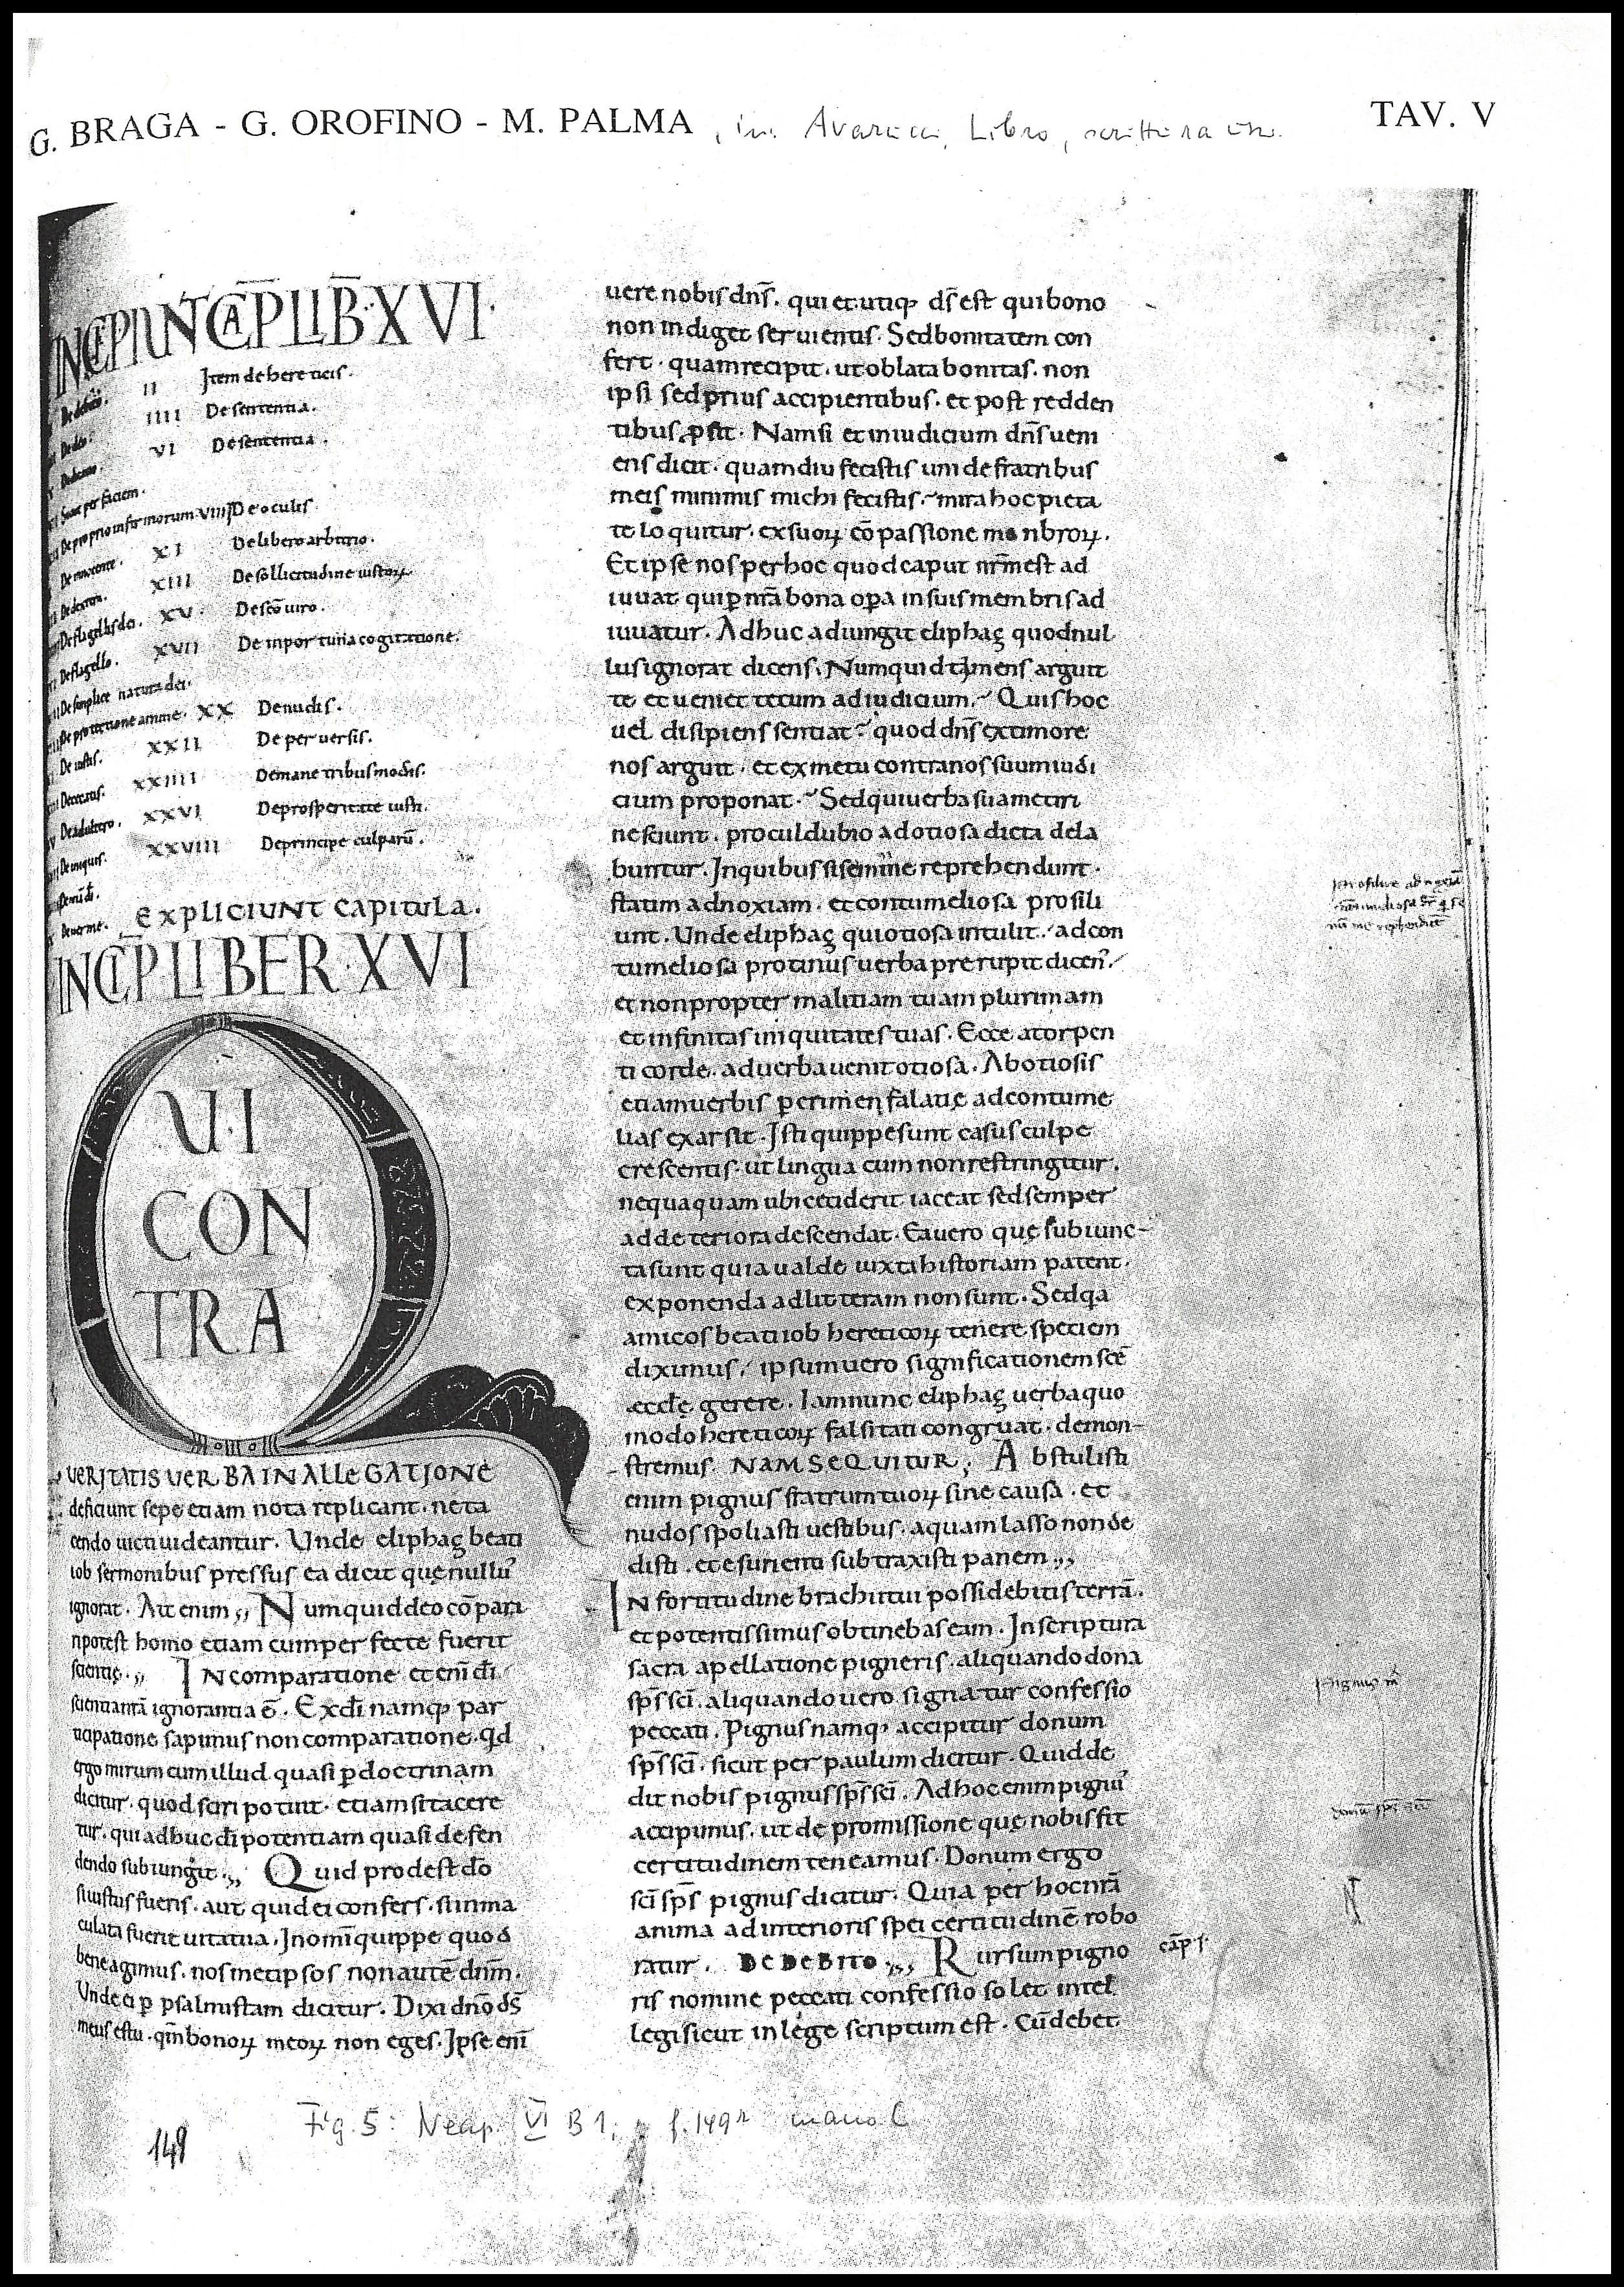 G. BRAGA - G. OROFINO - M. PALMA , in: Avarucci, Libro, scrittura ecc. TAV. V
INCIPIUNT CAP̄ LIB̄·XVI·
De debito. II Item de hereticis.
De deo. IIII De sententia.
De domo. VI De sententia.
Sume per faciem.
De proprio infirmorum VIIII De oculis.
De innocente. XI De libero arbitrio.
De dextera. XIII De sollicitudine iustoꝝ
De flagellis dei. XV· De sc̄o uiro.
De flagello. XVII De inportuna cogitatione.
De simplice natura dei.
De protectione anime. XX De nudis.
De iustis. XXII De peruersis.
De terrenis. XXIIII De mane tribus modis.
De adultero. XXVI De prosperitate iusti.
De iniquis. XXVIII De principe culparū.
De mūdi.
De uerme. EXPLICIUNT CAPITULA.
INCIP̄ LIBER·XVI
QUI
CON
TRA
UERITATIS UERBA IN ALLEGATIONE
deficiunt sepe etiam nota replicant· ne ta
cendo uicti uideantur. Unde eliphaz beati
iob sermonibus pressus ea dicit quę nullu᷒
ignorat. Ait enim,, Numquid deo cōpari
npotest homo etiam cum perfecte fuerit
scientię.,, IN comparatione et eni d̄i
scientia nr̄a ignorantia ē. Ex d̄i namq; par
ticipatione sapimus non comparatione. qd
ergo mirum cum illud quasi ꝑ doctrinam
dicitur. quod sciri potuit· etiam si tacere
tur. qui adhuc d̄i potentiam quasi defen
dendo subiungit.,, Quid prodest d̄o
si iustus fueris. aut quid ei confers· si inma
culata fuerit uita tua. In om̄i quippe quod
bene agimus. nosmetipsos non autē dn̄m.
Unde ei ꝑ psalmistam dicitur. Dixi dn̄o d̄s
meus es tu· qm̄ bonoꝝ meoꝝ non eges. Ipse eni
uere nobis dn̄s. qui et utiq; d̄s est qui bono
non indiget seruientis. Sed bonitatem con
fert· quam recipit. ut oblata bonitas. non
ipsi sed prius accipientibus. et post redden
tibus ꝓsit. Nam si et in iudicium dn̄s ueni
ens dicit. quamdiu fecistis uni de fratribus
meis minimis michi fecistis. mira hoc pieta
te loquitur. ex suoꝝ cōpassione menbroꝝ.
Et ipse nos per hoc quod caput nr̄m est ad
iuuat qui ꝑ nr̄a bona opa in suis membris ad
iuuatur. Adhuc adiungit eliphaz quod nul
lus ignorat dicens. Numquid timens arguit
te et ueniet tecum ad iudicium. Quis hoc
uel disipiens sentiat? quod dn̄s ex timore
nos arguit. et ex metu contra nos suum iudi
cium proponat. Sed qui uerba sua metiri
nesciunt. procul dubio ad otiosa dicta dela
buntur. In quibus si semine reprehendunt·
statim ad noxiam. et contumeliosa prosili
unt. Unde eliphaz qui otiosa intulit. ad con
tumeliosa protinus uerba prerupit dicen᷒.
et non propter malitiam tuam plurimam
et infinitas iniquitates tuas. Ecce a torpen
ti corde. ad uerba uenit otiosa. Ab otiosis
etiam uerbis ꝑ crimen falatię ad contume
lias exarsit. Isti quippe sunt casus culpe
crescentis. ut lingua cum non restringitur.
nequaquam ubi ceciderit iaceat sed semper
ad deteriora descendat. Ea uero quę subiunc-
ta sunt quia ualde iuxta historiam patent.
exponenda ad litteram non sunt. Sed qa
amicos beati iob hereticoꝝ tenere speciem
diximus. ipsum uero significationem scē
eccłę gerere. Iam nunc eliphaz uerba quo
modo hereticoꝝ falsitati congruat. demon-
stremus. NAM SEQUITUR; Abstulisti
enim pignus fratrum tuoꝝ sine causa. et
nudos spoliasti uestibus. aquam lasso non de
disti. et esurienti subtraxisti panem,,
IN fortitudine brachii tui possidebitis terrā.
et potentissimus obtinebas eam. In scriptura
sacra apellatione pigneris. aliquando dona
sps̄ sci. aliquando uero signatur confessio
peccati. Pignus namq; accipitur donum
sps̄ sci. sicut per paulum dicitur. Qui dde
dit nobis pignus sps̄ sci. Ad hoc enim pignu᷒
accipimus. ut de promissione quę nobis fit
certitudinem teneamus. Donum ergo
sci sps̄ pignus dicitur. Quia per hoc nr̄a
anima ad interioris spei certitudinē robo
ratur. DE DEBITO.,, Rursum pigno cap̄ I.
ris nomine peccati confessio solet intel
legi sicut in lege scriptum est. Cū debet
pignus
donū sps̄ sci
Fig. 5: Neap. VI B 1, f. 149r mano C
149